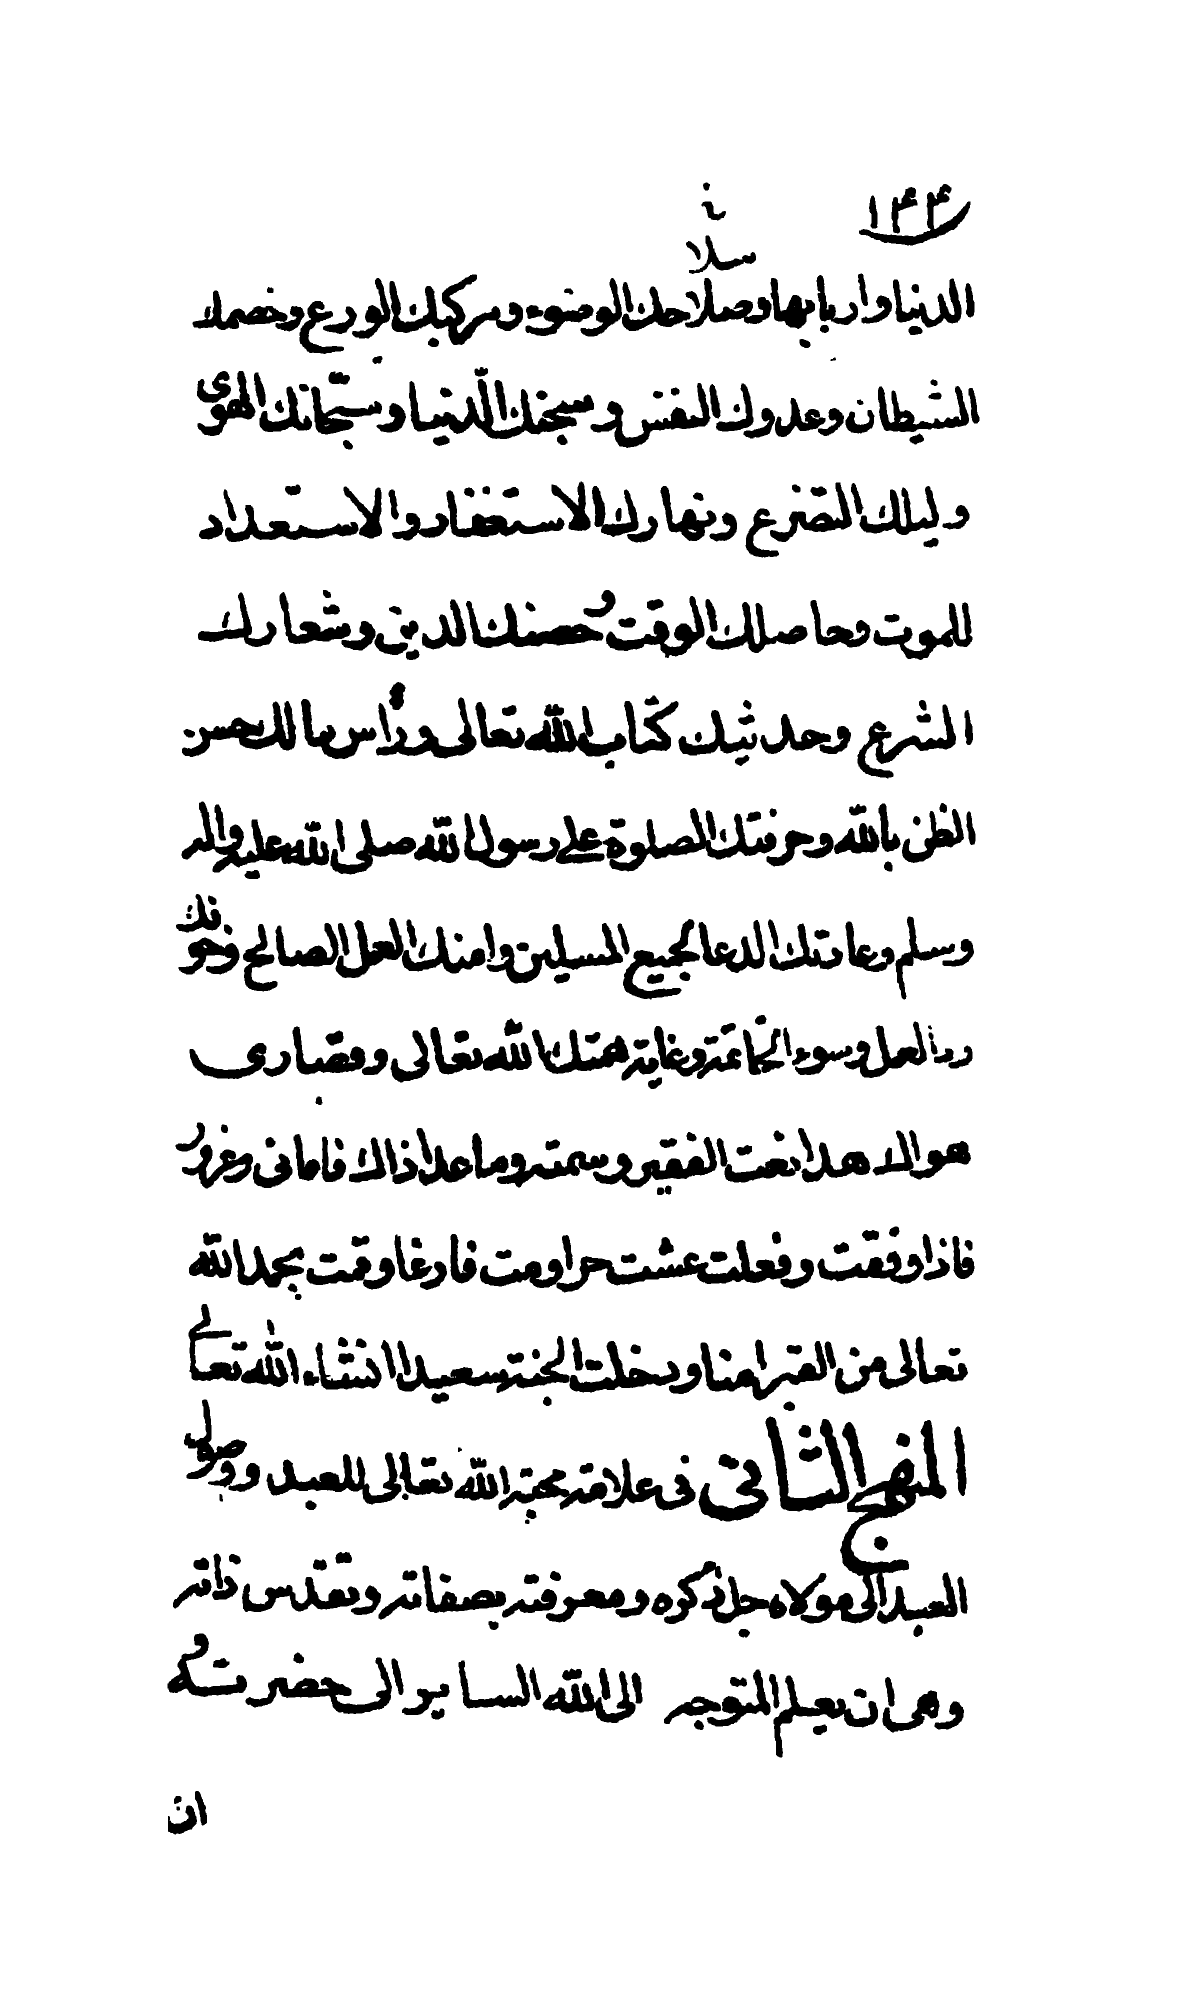 ١٣٣
ن
سلا
الدنيا واربابها وصلاحك الوضوء ومركبك الورع وخصمك
الشيطان وعدوك النفس وسجنك الدّنيا وسبّحانك الهوى
وليلك التضرع ونهارك الاستغفار والاستعداد
للموت وحاصلك الوقت وحصنك الدين وشعارك
الشرع وحديثك كتاب الله تعالى ورأس مالك حسن
الظن بالله وحرفتك الصلوة على رسول الله صلى الله عليه واله
وسلم وعادتك الدعا لجميع المسلمين وامنك العمل الصالح وخوفك
رد العمل وسوء الخاتمة وغاية همتك الله تعالى وقصارى
هواك هذا نعت الفقير وسمته وما عدا ذاك فاماني وغرور
فاذا وفقت وفعلت عشت حرا ومت فارغا وقمت بحمد الله
تعالى من القبر امنا ودخلت الجنة سعيدا ان شاء الله تعالى
المنهج الثاني في علامة محبة الله تعالى للعبد ووصول
العبد الى مولاه جل ذكره ومعرفته بصفاته وتقدس ذاته
وهى ان يعلم المتوجه الى الله الساير الى حضرته
ان